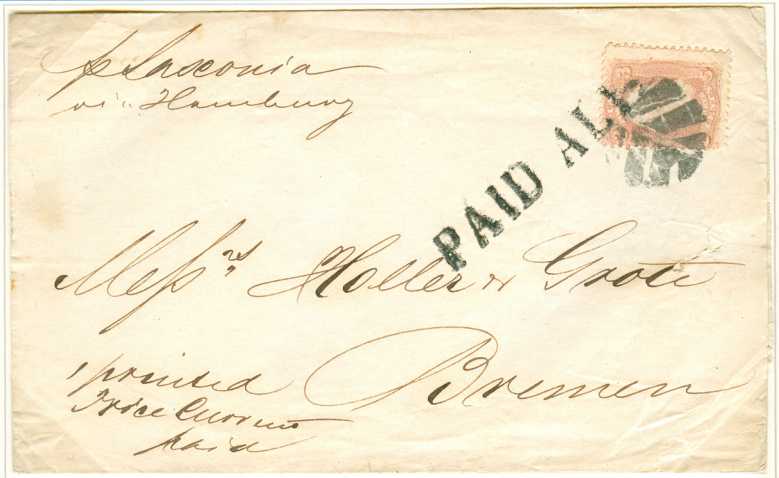 p Saxonia
via Hamburg
PAID ALL
3 3
Messrs Holler & Grote
Bremen
printed
Price Current
paid